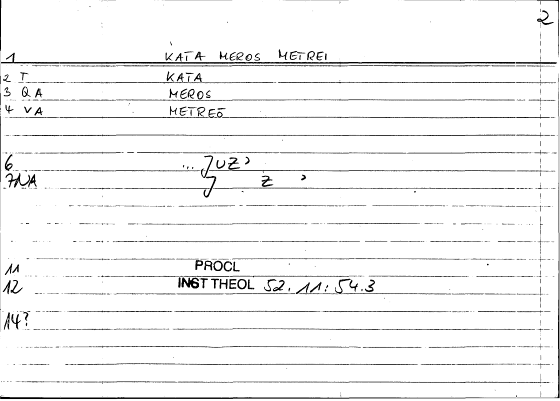 2
1 KATA MEROS METREI
2 T KATA
3 Q A MEROS
4 V A METREŌ
6 ...
7NA
11 PROCL
12 INST THEOL 52. 11: 54.3
14?